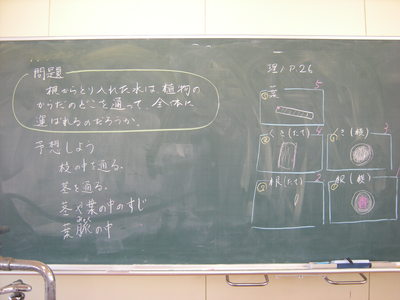 問題
根からとり入れた水は植物の
からだのどこを通って、全体に
運ばれるのだろうか。
予想しよう
枝の中を通る。
茎を通る。
茎や葉の中のすじ
みゃく
葉脈の中
理ノP.26
5
葉
くき(たて)
4
くき(横)
3
②
根(たて)
2
①
根(横)
1